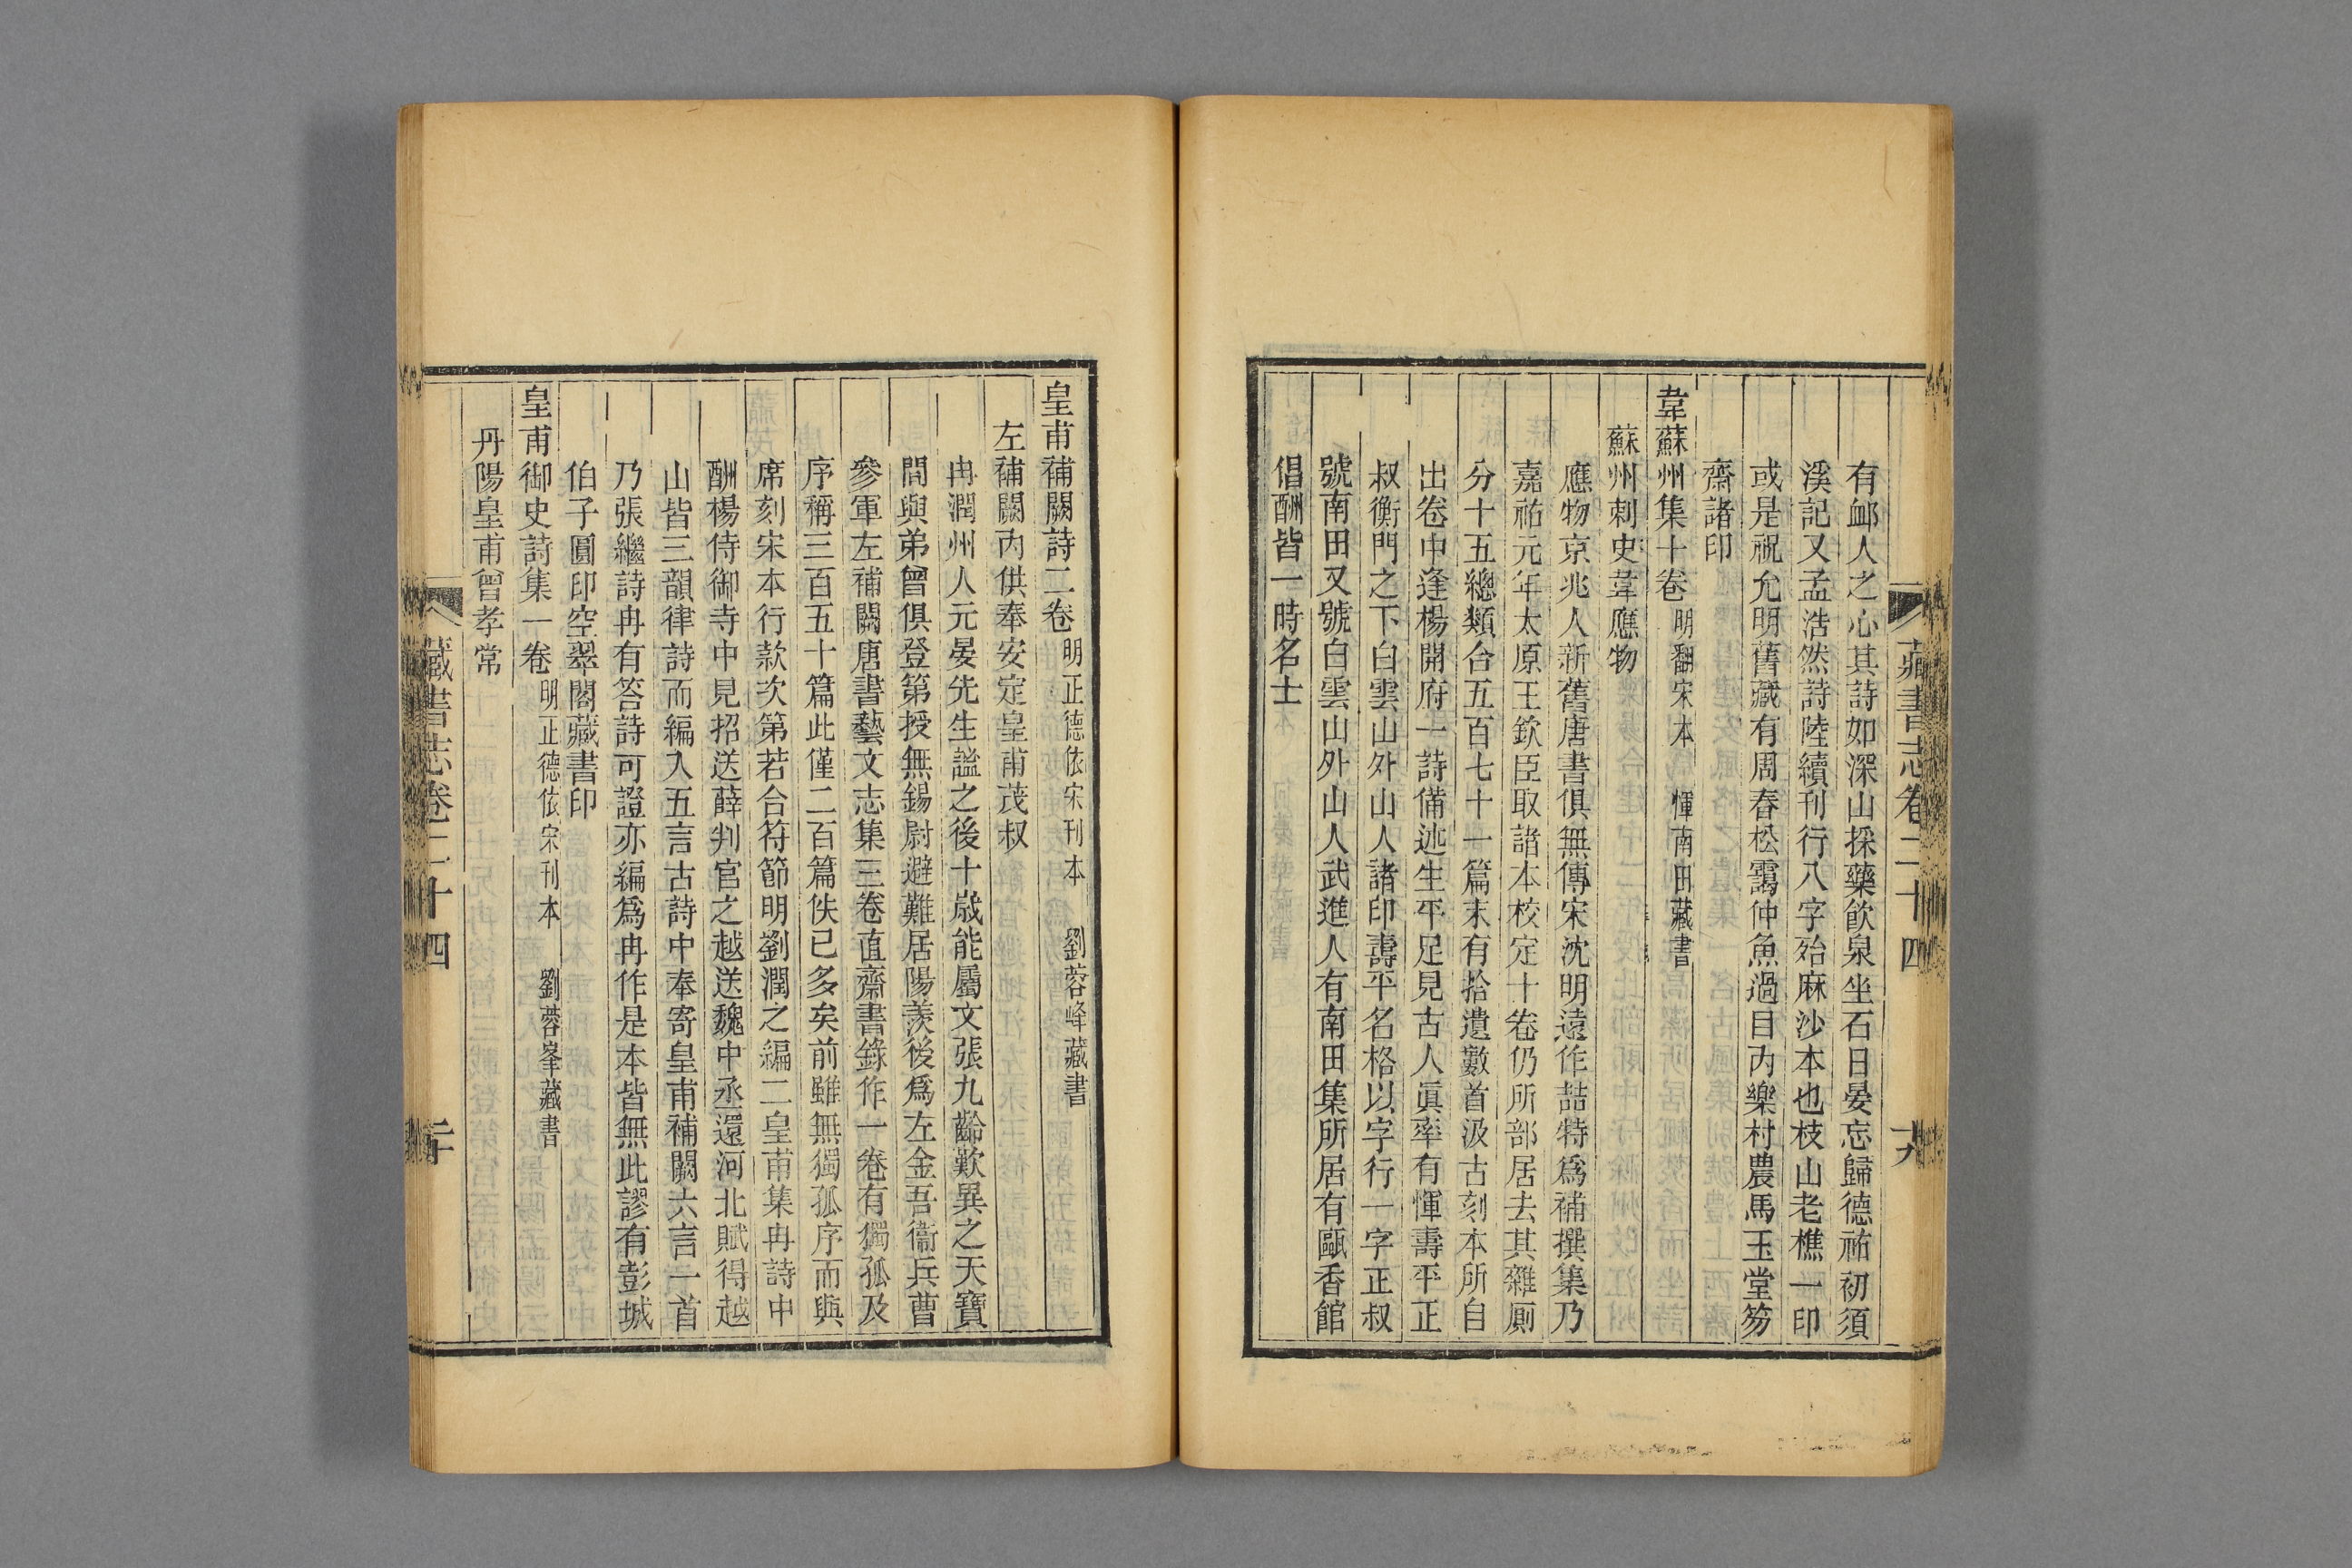 藏書志卷二十四
有䘏人之心其詩如深山採藥飲泉坐石日晏忘歸德祐初須
溪記又孟浩然詩陸續刊行八字殆麻沙本也枝山老樵一印
或是祝允明舊藏有周春松靄仲魚過目內樂村農馬玉堂笏
齋諸印
韋蘇州集十卷 明翻宋本 惲南田藏書
蘇州刺史韋應物
應物京兆人新舊唐書俱無傳宋沈明遠作喆特爲補撰集乃
嘉祐元年太原王欽臣取諸本校定十卷仍所部居去其雜厠
分十五總類合五百七十一篇末有拾遺數首汲古刻本所自
出卷中逢楊開府一詩備述生平足見古人眞率有惲壽平正
叔衡門之下白雲山外山人諸印壽平名格以字行一字正叔
號南田又號白雲山外山人武進人有南田集所居有甌香館
倡酬皆一時名士
皇甫補闕詩二卷 明正德依宋刊本 劉蓉峰藏書
左補闕內供奉安定皇甫茂叔
冉潤州人元晏先生謚之後十歲能屬文張九齡歎異之天寶
間與弟曾俱登第授無錫尉避難居陽羨後爲左金吾衞兵曹
參軍左補闕唐書藝文志集三卷直齋書錄作一卷有獨孤及
序稱三百五十篇此僅二百篇佚已多矣前雖無獨孤序而與
席刻宋本行款次第若合符節明劉潤之編二皇甫集冉詩中
酬楊侍御寺中見招送薛判官之越送魏中丞還河北賦得越
山皆三韻律詩而編入五言古詩中奉寄皇甫補闕六言一首
乃張繼詩冉有答詩可證亦編爲冉作是本皆無此謬有彭城
伯子圓印空翠閣藏書印
皇甫御史詩集一卷 明正德依宋刊本 劉蓉峯藏書
丹陽皇甫曾孝常
藏書志卷二十四